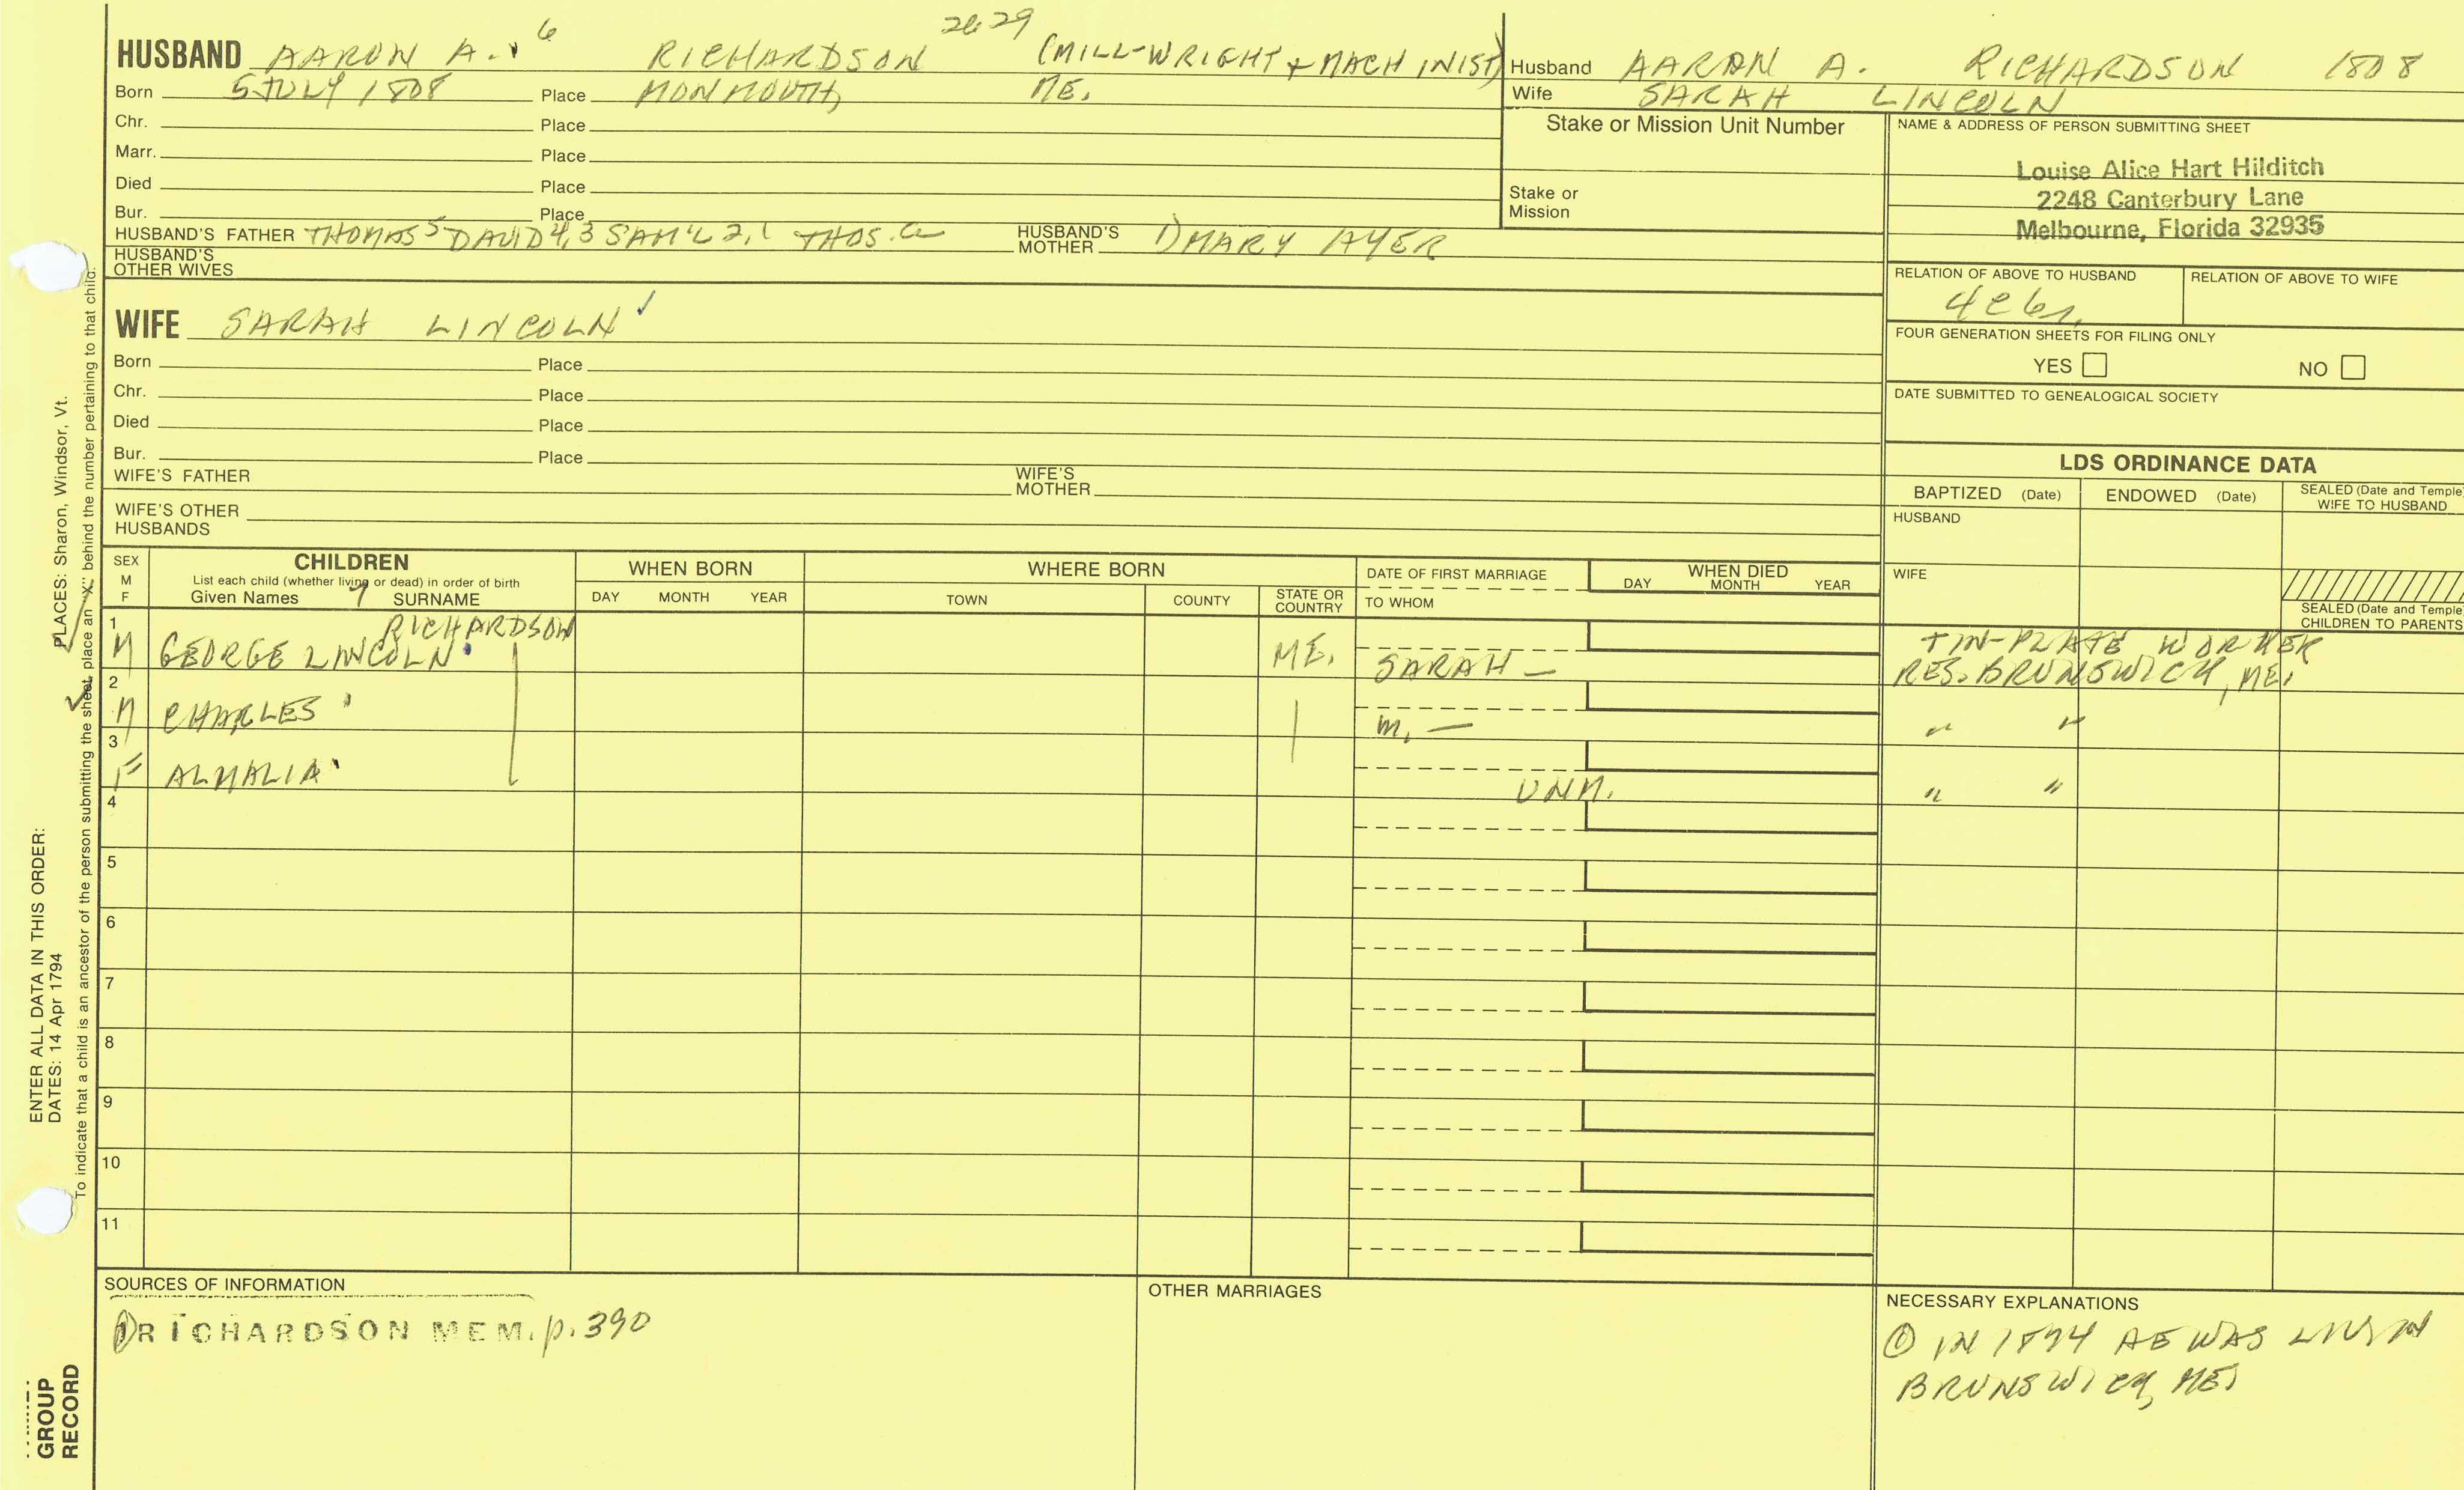 2629
HUSBAND AARON A. 6 RICHARDSON (MILL-WRIGHT + MACHINIST)
Born 5 JULY 1808 Place MONMOUTH, ME.
Chr. Place
Marr. Place
Died Place
Bur. Place
HUSBAND'S FATHER THOMAS 5 DAVID 4,3 SAM'L 2,1 THOS. HUSBAND'S MOTHER 1) MARY AYER
HUSBAND'S OTHER WIVES
Husband AARON A. RICHARDSON 1808
Wife SARAH LINCOLN
Stake or Mission Unit Number
Stake or
Mission
NAME & ADDRESS OF PERSON SUBMITTING SHEET
Louise Alice Hart Hilditch
2248 Canterbury Lane
Melbourne, Florida 32935
RELATION OF ABOVE TO HUSBAND RELATION OF ABOVE TO WIFE
FOUR GENERATION SHEETS FOR FILING ONLY
YES NO
DATE SUBMITTED TO GENEALOGICAL SOCIETY
WIFE SARAH LINCOLN
Born Place
Chr. Place
Died Place
Bur. Place
WIFE'S FATHER WIFE'S MOTHER
WIFE'S OTHER HUSBANDS
LDS ORDINANCE DATA
BAPTIZED (Date) ENDOWED (Date) SEALED (Date and Temple)
WIFE TO HUSBAND
HUSBAND
WIFE
SEALED (Date and Temple)
CHILDREN TO PARENTS
SEX
M
F
CHILDREN
List each child (whether living or dead) in order of birth
Given Names 7 SURNAME
WHEN BORN
DAY MONTH YEAR
WHERE BORN
TOWN COUNTY STATE OR COUNTRY
DATE OF FIRST MARRIAGE
TO WHOM
WHEN DIED
DAY MONTH YEAR
RICHARDSON
1 M GEORGE LINCOLN ME. SARAH — TIN-PLATE WORKER
RES. BRUNSWICK, ME.
2 M CHARLES m. — " "
3 F ALMALIA UNM. " "
4
5
6
7
8
9
10
11
SOURCES OF INFORMATION
1) RICHARDSON MEM. p. 390
OTHER MARRIAGES
NECESSARY EXPLANATIONS
① IN 1874 HE WAS
BRUNSWICK, ME.
PLACES: Sharon, Windsor, Vt.
ENTER ALL DATA IN THIS ORDER:
DATES: 14 Apr 1794
To indicate that a child is an ancestor of the person submitting the sheet, place an "X" behind the number pertaining to that child.
GROUP
RECORD